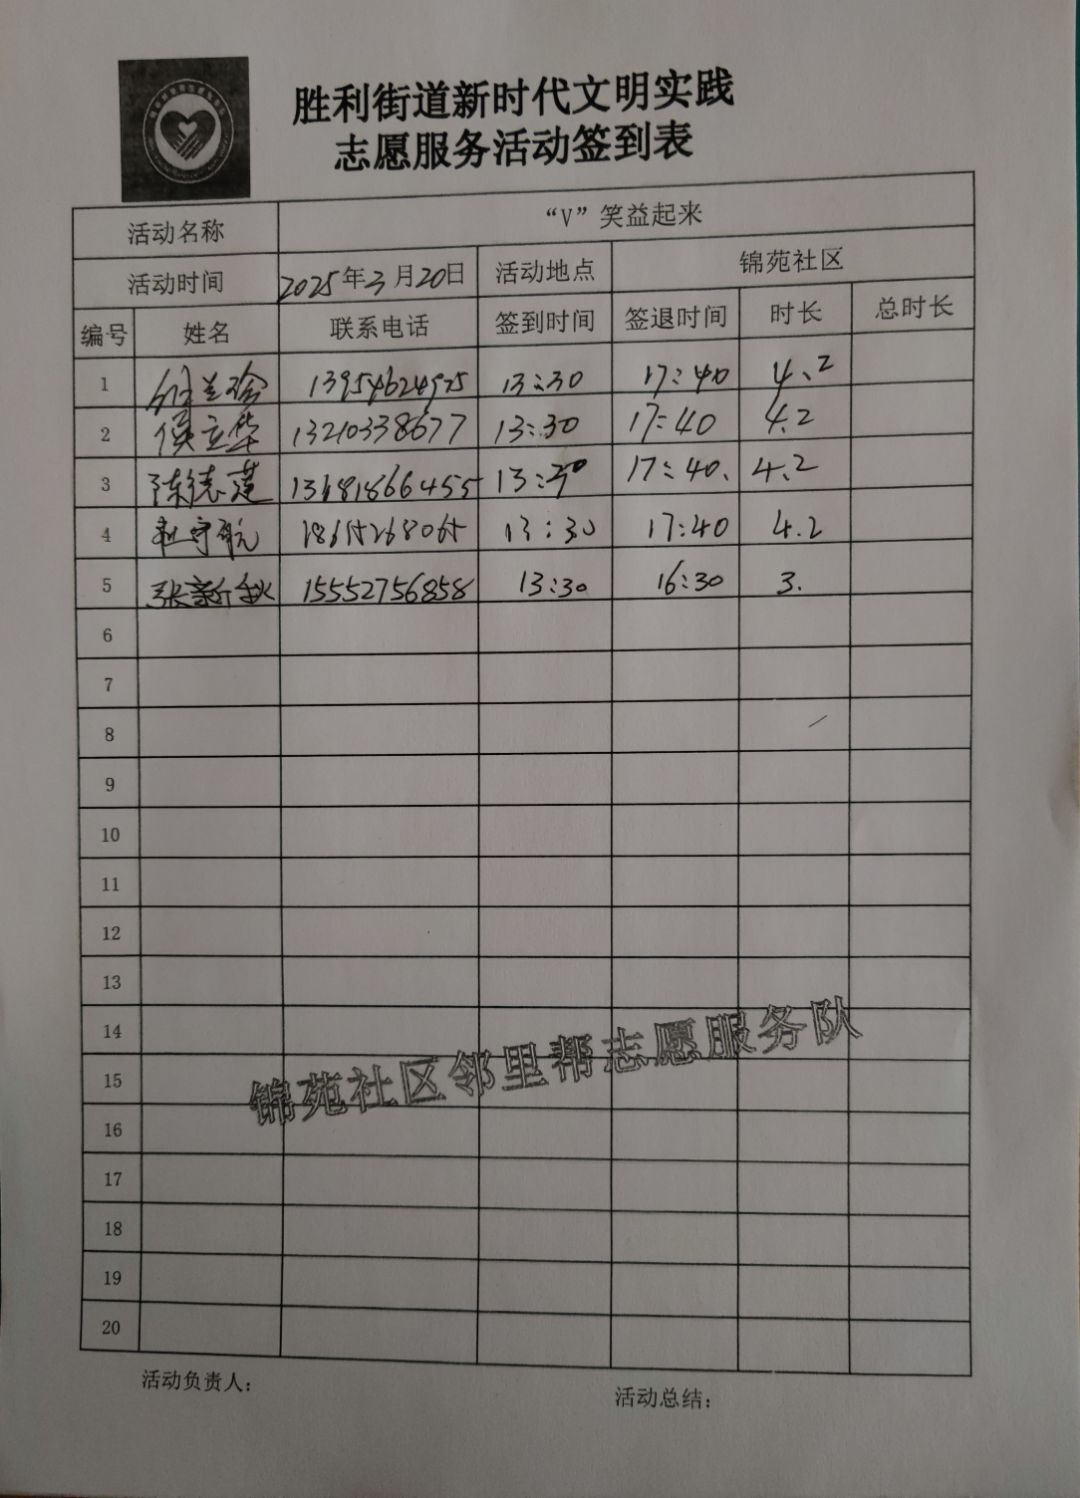 胜利街道新时代文明实践
志愿服务活动签到表
活动名称 “V”笑益起来
活动时间 2025年3月20日 活动地点 锦苑社区
编号 姓名 联系电话 签到时间 签退时间 时长 总时长
1 兰珍 13954624975 13:30 17:40 4.2
2 侯立华 13210338677 13:30 17:40 4.2
3 陈德莲 13681866455 13:30 17:40. 4.2
4 赵守航 18615268065 13:30 17:40 4.2
5 张新秋 15552756858 13:30 16:30 3.
6
7
8
9
10
11
12
13
14
15
16
17
18
19
20
锦苑社区邻里帮志愿服务队
活动负责人：
活动总结：